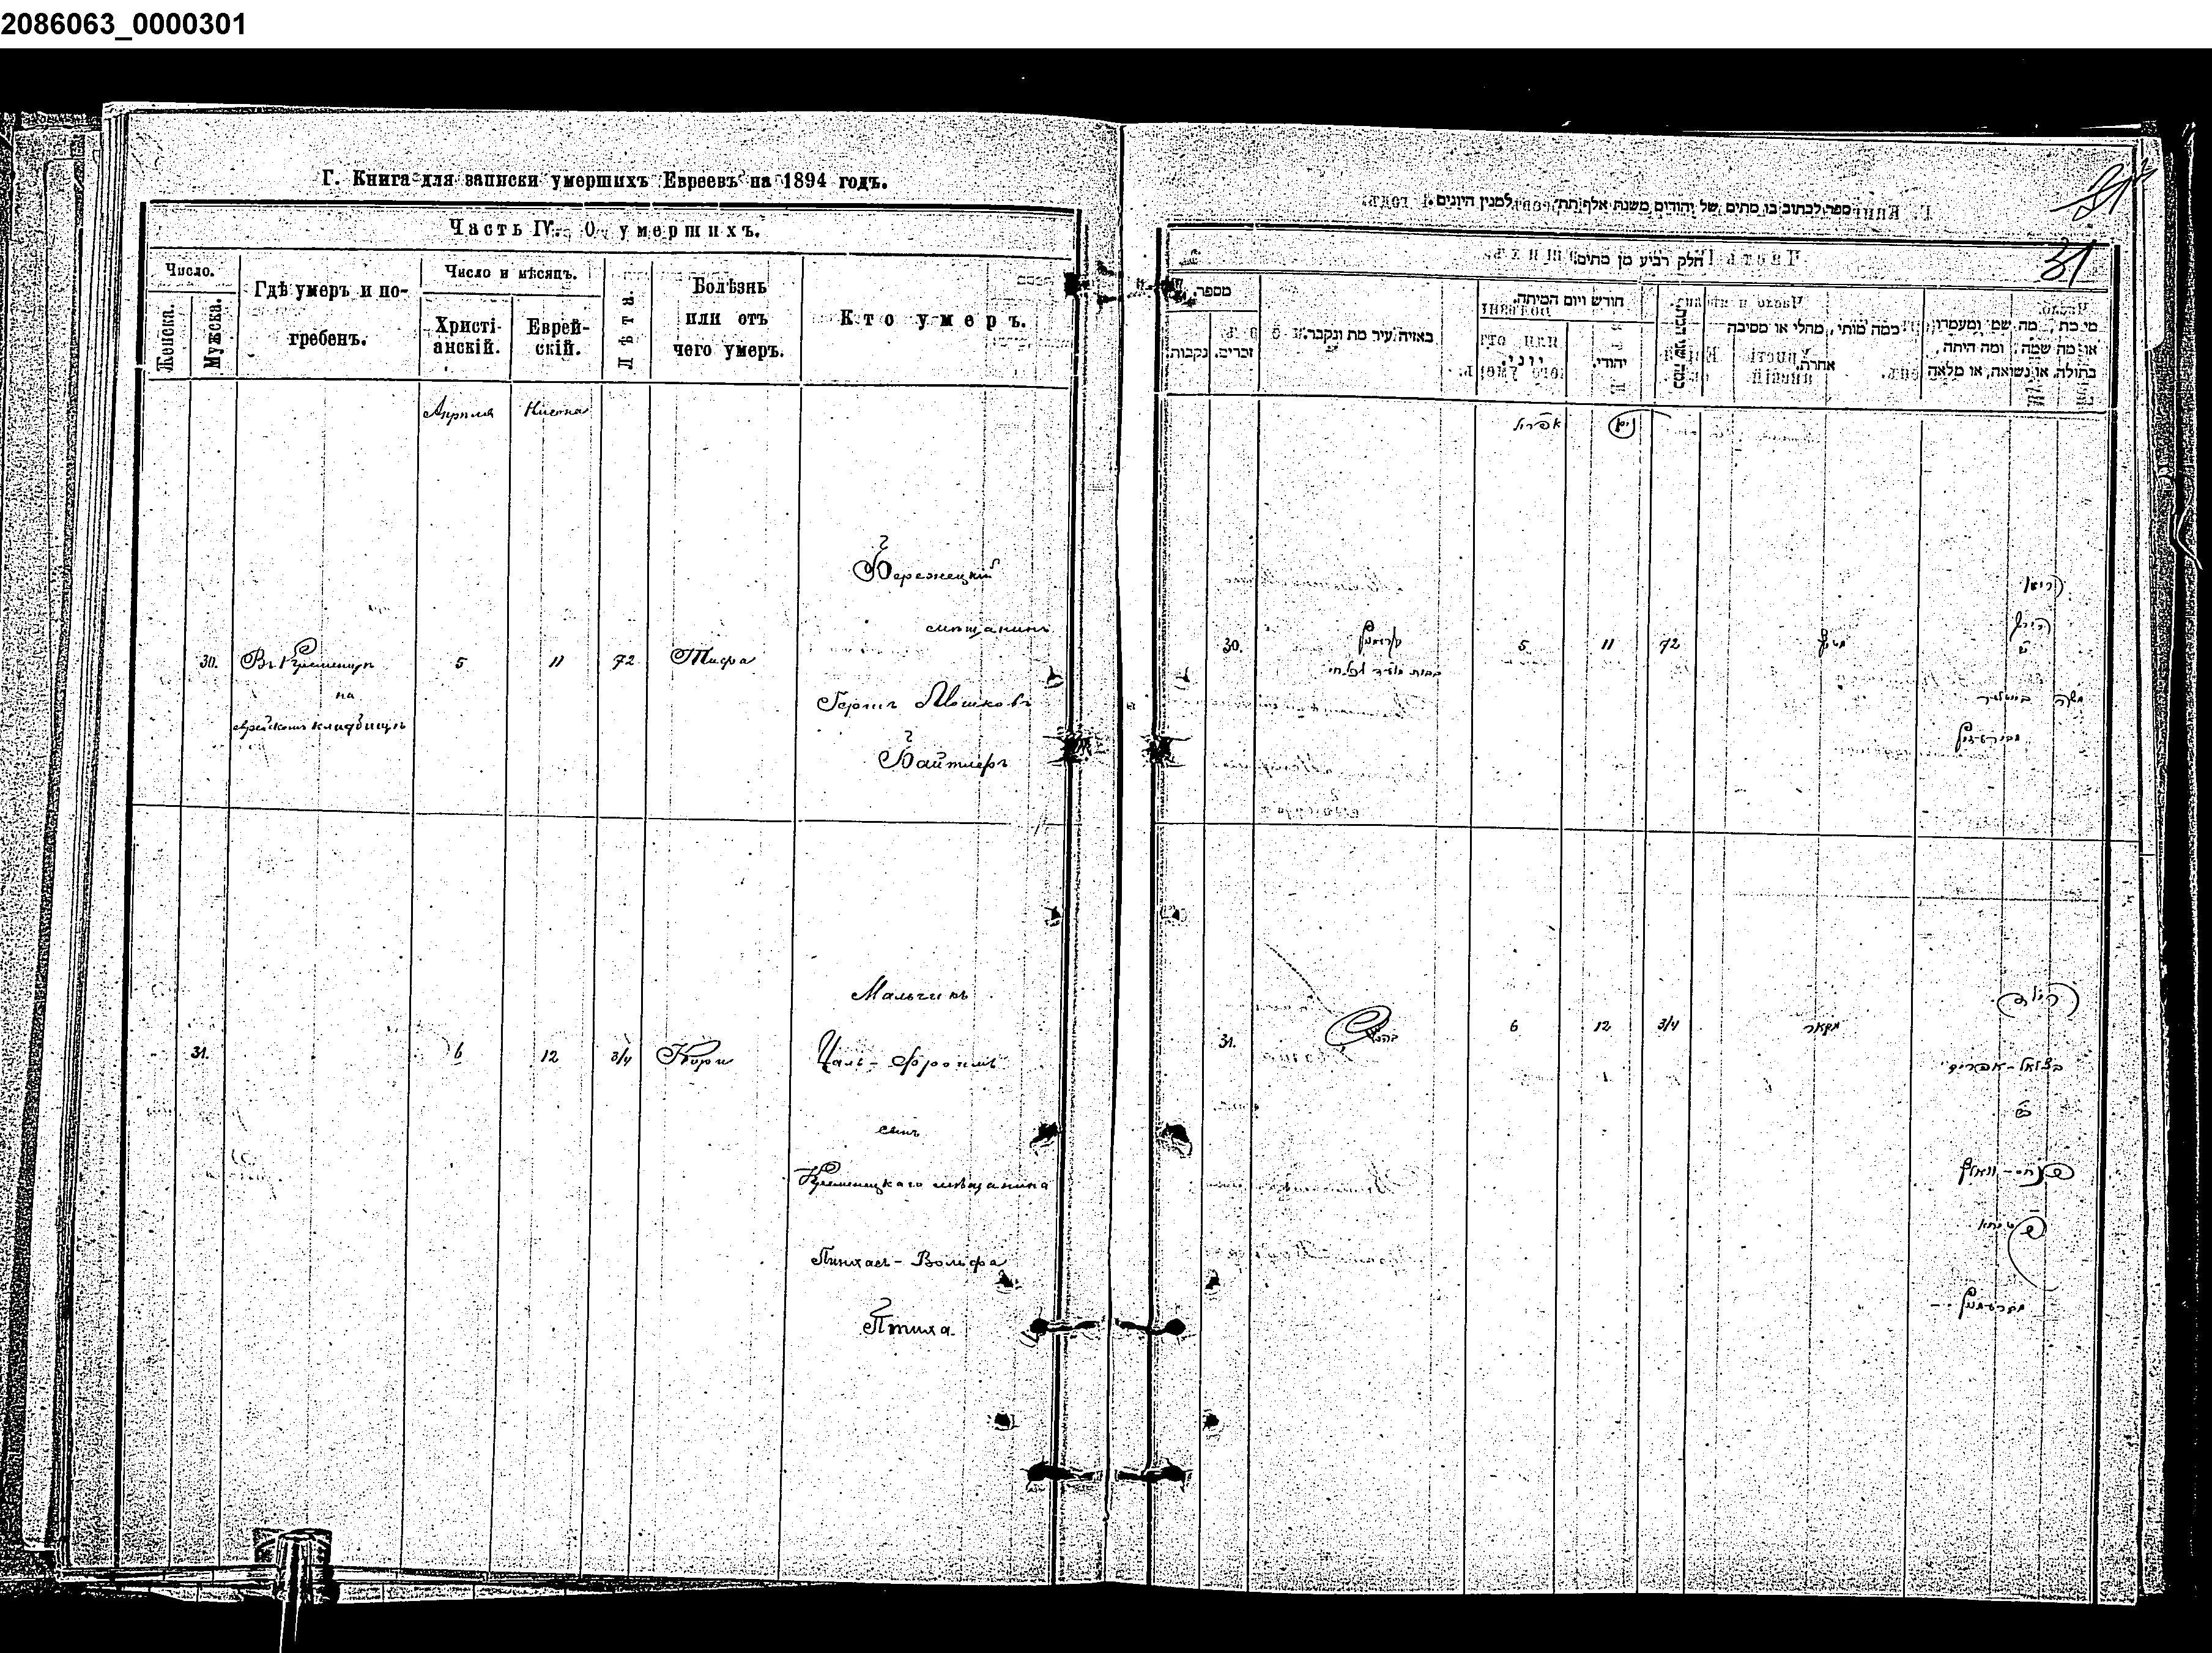 2086063_0000301
Г. Книга для записки умершихъ Евреевъ на 1894 годъ.
Часть IV. О умершихъ.
Число.
Женска.
Мужска.
Гдѣ умеръ и по-
гребенъ.
Число и мѣсяцъ.
Христі-
анскій.
Еврей-
скій.
Лѣта.
Болѣзнь
или отъ
чего умеръ.
Кто умеръ.
Апрѣля
Нисона
30.
Въ Кременцѣ
на
еврейскомъ кладбищѣ
5
11
72
Тифа
Бережецкій
мѣщанинъ
Гершъ Мошковъ
Байтлеръ
31.
6
12
3/4
Кори
Мальчикъ
Цаль-Фроимъ
сынъ
Кременецкаго мѣщанина
Пинхасъ-Вольфа
Птиха
31
ספר לכתוב בו מתים של יהודים משנת אלף תת למנין היונים.
חלק רביע מן מתים
מספר.
זכרים.
נקבות.
באיזה עיר מת ונקבר.
חורש ויום המיתה.
יוני.
יהודי.
כמה מותי, מחלי או מסיבה
אחרת.
מי מת, מה שמו ומעמדו,
או מה שמה, ומה היתה,
בתולה, או נשואה, או מלאה
אפריל
ניסן
30.
5
11
72
משה בייטלר
31.
6
12
3/4
הילד
בצלאל-אפרים
פנחס-וואלף